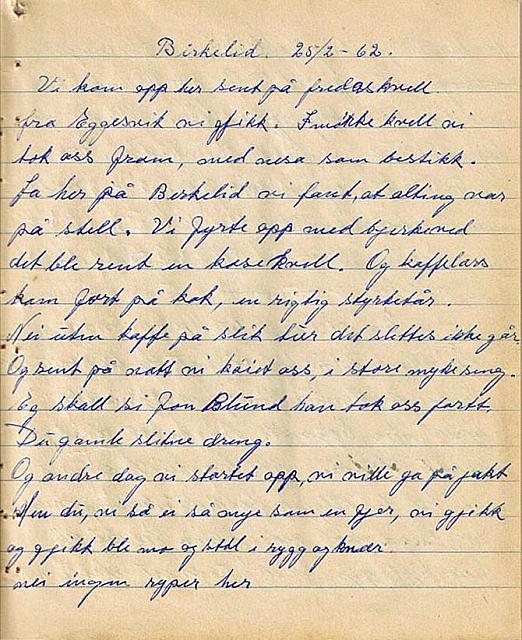 Birkelid. 25/2-62.
Vi kom opp her sent på fredaskvell
fra Eggesvik vi gjikk. I møkke kvell vi
tok oss fram, med nesa som bestikk.
Ja her på Birkelid vi fant, at alting var
på stell. Vi fyrte opp med bjerkeved
det ble rent en kosekvell. Og kaffelars
kom fort på kok, en rigtig styrketår.
Nei uten kaffe på slik tur det slettes ikke går.
Og sent på natt vi køiet oss, i store myke seng.
Eg skall si Jon Blund han tok oss fortt,
Du gamle slitne dreng.
Og andre dag vi startet opp, vi ville gå på jakt
Men du, vi så ei så mye som en fjer, vi gjikk
og gjikt ble mo og støl i rygg og knær.
nei ingen ryper her